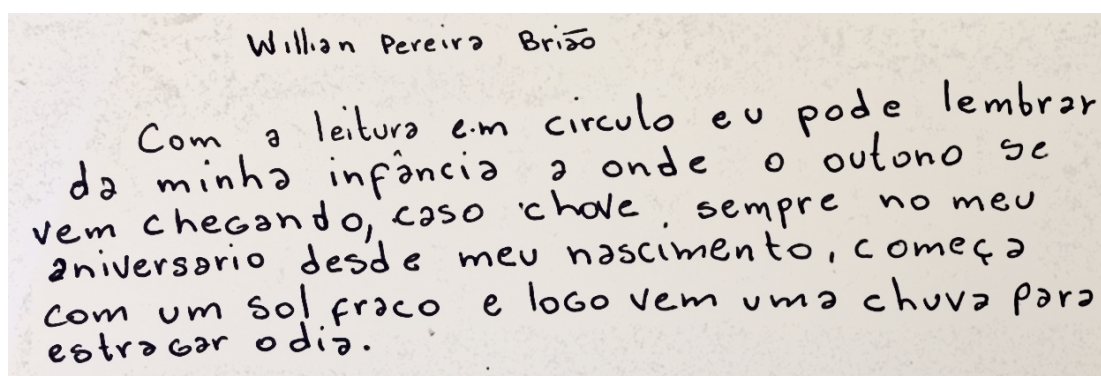 Willian Pereira Brião
Com a leitura em circulo eu pode lembrar
da minha infância a onde o outono se
vem chegando, caso chove sempre no meu
aniversario desde meu nascimento, começa
com um sol fraco e logo vem uma chuva para
estragar o dia.